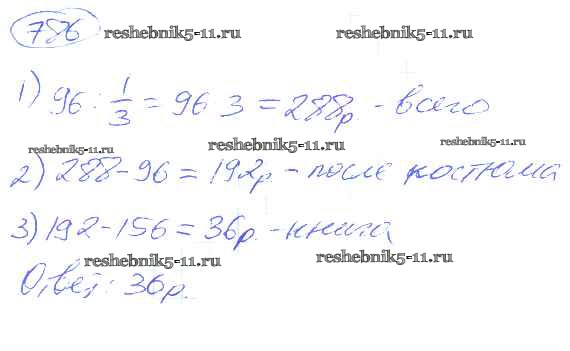 786 reshebnik5-11.ru reshebnik5-11.ru
1) 96 : 1/3 = 96 · 3 = 288р - всего
reshebnik5-11.ru reshebnik5-11.ru reshebnik5-11.ru
2) 288-96 = 192р. - после костюма
3) 192-156 = 36р. - книга
reshebnik5-11.ru reshebnik5-11.ru
Ответ: 36р.